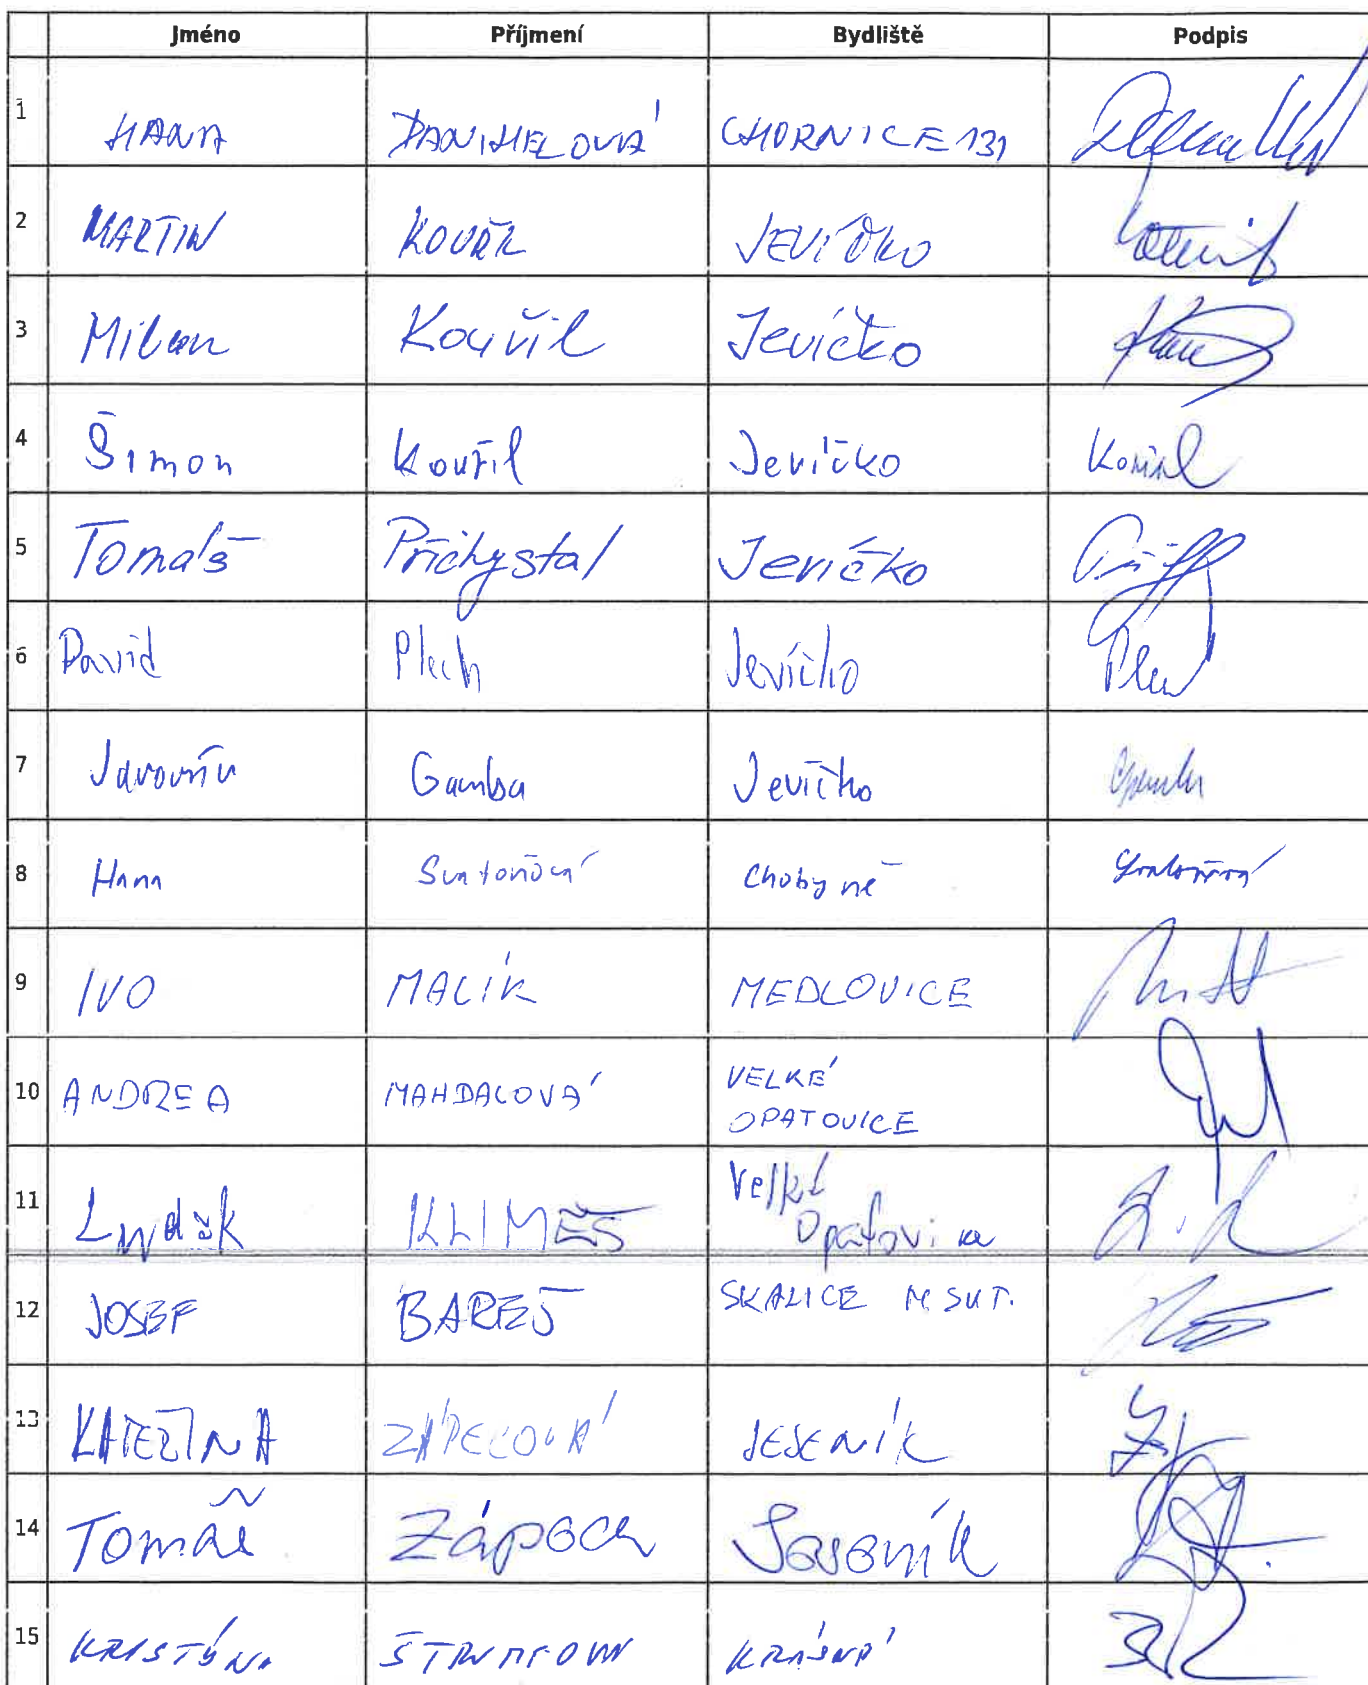 Jméno Příjmení Bydliště Podpis
1 HANA DANIHELOVÁ CHORNICE 131
2 MARTIN KOUŘIL JEVÍČKO
3 Milan Kouřil Jevíčko
4 Šimon Kouřil Jevíčko Kouřil
5 Tomáš Přichystal Jevíčko
6 David Plech Jevíčko
7 Jaromír Gamba Jevíčko
8 Hana Svatoňová Chobyně
9 IVO MALÍK MEDLOVICE
10 ANDREA MAHDALOVÁ VELKÉ
OPATOVICE
11 Luděk KLIMEŠ Velké
Opatovice
12 JOSEF BAREŠ SKALICE N SVIT.
13 KATEŘINA ZÁPECOVÁ JESENÍK
14 Tomáš Zápeca Jeseník
15 KRISTÝNA KRÁSNÉ